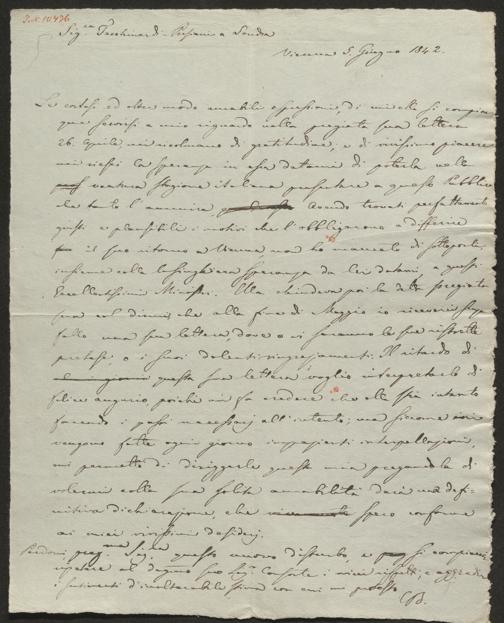 J.N. 10436
Sig.ra Tacchinardi-Persiani a Londra
Vienna 5 Giugno 1842.
Le cortesi ed oltre modo amabili espressioni, di cui ella si compia-
que favorirmi a mio riguardo nella pregiata sua lettera
26. Aprile, mi ricolmano di gratitudine, e di vivissimo piacere
mi riesce la speranza in essa datami di poterla nella
ventura stagione italiana presentare a questo Pubblico
che tanto l'ammira. Avendo trovati perfettamente
giusti e plausibili i motivi che l'obbligarono a differire
il suo ritorno a Vienna non ho mancato di sottoporli,
insieme colla lusinghiera speranza da lei datami, a questi
Eccellentissimi Ministri. Ella chiudeva poi la detta pregiata
sua col dirmi, che alla fine di Maggio io riceverei
altra sua lettera, dove o vi saranno le sue ristrette
pretese, o i suoi dolenti ringraziamenti. Il ritardo di
questa sua lettera voglio interpretarlo di
felice augurio, poichè mi fa credere che ella stia intanto
facendo i passi necessarj all'intento; ma siccome mi
vengono fatte ogni giorno impazienti interpellazioni,
mi permetto di diriggerle questa mia pregandola di
volermi colla sua solita amabilità dare una defi-
nitiva dichiarazione, che spero conforme
ai miei vivissimi desiderj.
Perdoni, preg.ma Sig.ra questo nuovo disturbo, e si compiaccia
ripetere al degno suo Sig.r Consorte i miei rispetti, e aggradire
i sentimenti d'inalterabile stima con cui mi protesto